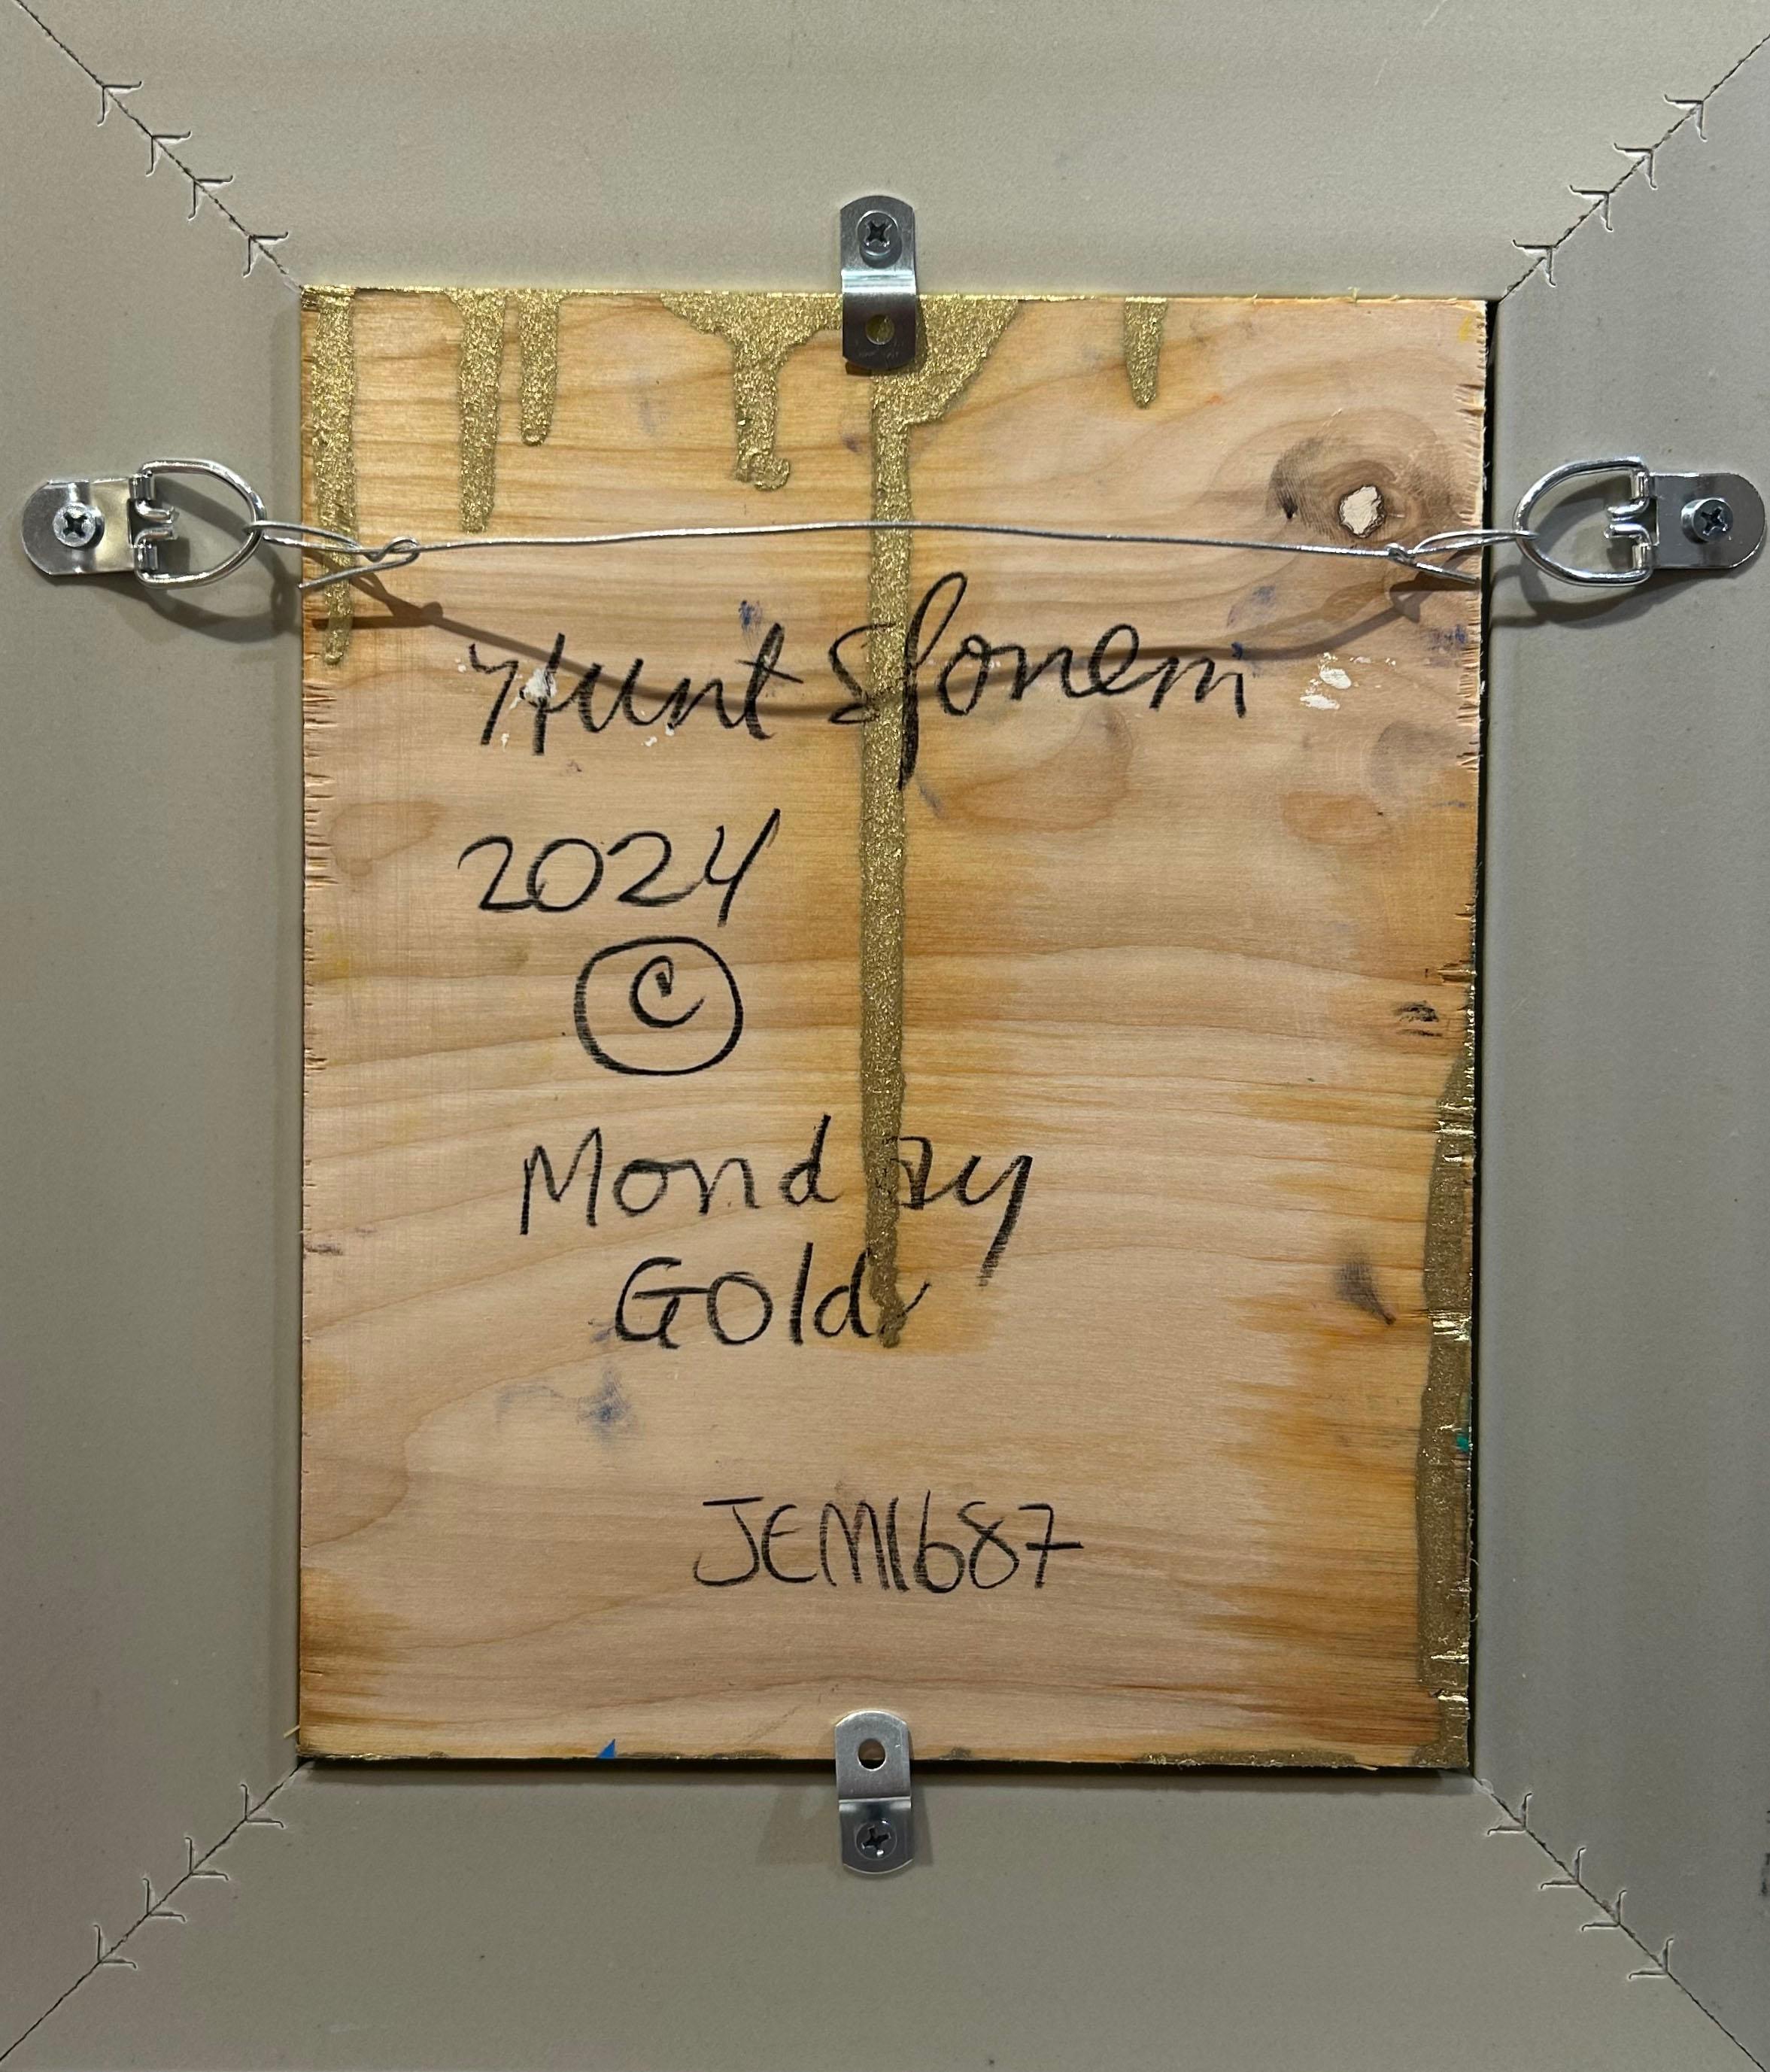 Hunt Slonem
2024
©
Monday
Gold
JEM1687